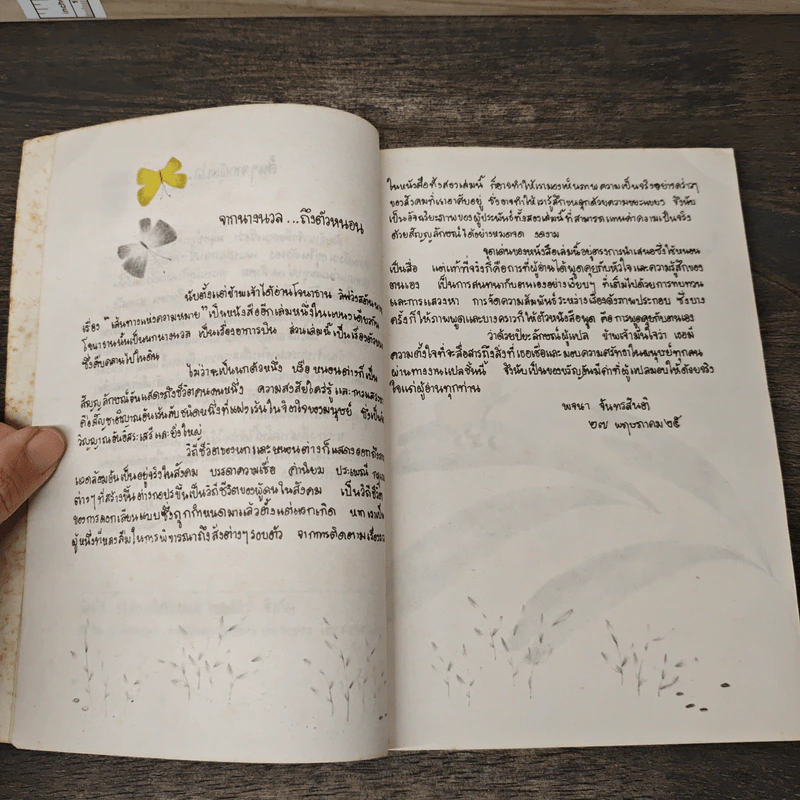 จากนางนวล...ถึงตัวหนอน
นับตั้งแต่ข้าพเจ้าได้อ่านโจนาธาน ลิฟวิงสตัน นาง
เรื่อง "เส้นทางแห่งความหมาย" เป็นหนังสืออีกเล่มหนึ่งในแนวเดียวกัน
โจนาธานนั้นเป็นนกนางนวล เป็นเรื่องอาการบิน ส่วนเล่มนี้เป็นเรื่องตัวหนอน
ซึ่งคืบคลานไปในดิน
ไม่ว่าจะเป็นนกตัวหนึ่ง หรือ หนอนต่างก็เป็น
สัญญลักษณ์อันแสดงถึงชีวิตคนคนหนึ่ง ความสงสัยใคร่รู้ และการแสวงหา
คือสัญชาตญาณอันเร้นลับชนิดหนึ่งที่แฝงเร้นในจิตใจของมนุษย์ ซึ่งเป็น
วิญญาณอันอิสระเสรี และยิ่งใหญ่
วิถีชีวิตของนกและหนอนต่างก็แสดงออกถึง
แวดล้อมอันเป็นอยู่จริงในสังคม บรรดาความเชื่อ ค่านิยม ประเพณี
ต่างๆ ที่สร้างขึ้นต่างกอปรขึ้นเป็นวิถีชีวิตของผู้คนในสังคม เป็นวิถีชีวิต
ของการลอกเลียนแบบซึ่งถูกกำหนดมาแล้วตั้งแต่แรกเกิด หากเราเป็น
ผู้หนึ่งที่หลงลืมในการพิจารณาถึงสิ่งต่างๆ รอบตัว จากการติดตามเรื่อง
ในหนังสือทั้งสองเล่มนี้ ก็อาจทำให้เรามองเห็นภาพความเป็นจริงอย่างคร่าวๆ
ของสังคมที่เราอาศัยอยู่ ซึ่งอาจทำให้เรารู้สึกขนลุกด้วยความขยะแขยง ซึ่งนับ
เป็นอัจฉริยะภาพของผู้ประพันธ์ทั้งสองเล่มนี้ ที่สามารถแทนค่าความเป็นจริง
ด้วยสัญญลักษณ์ได้อย่างหมดจด งดงาม
จุดเด่นของหนังสือเล่มนี้อยู่ตรงการนำเสนอซึ่งใช้หนอน
เป็นสื่อ แต่แท้ที่จริงก็คือการที่ผู้อ่านได้พูดคุยกับหัวใจและความรู้สึกของ
ตนเอง เป็นการสนทนากับตนเองอย่างเงียบๆ ที่เต็มไปด้วยการทบทวน
และการแสวงหา การจัดความสัมพันธ์ระหว่างเรื่องกับภาพประกอบ ซึ่งบาง
ครั้งก็ให้ภาพพูดและบางคราวก็ให้ตัวหนังสือพูด คือ การพูดคุยกับตนเอง
ว่าด้วยปิยะลักษณ์ผู้แปล ข้าพเจ้ามั่นใจว่า เธอมี
ความตั้งใจที่จะสื่อสารถึงสิ่งที่เธอเชื่อและมอบความศรัทธาในมนุษย์ทุกคน
ผ่านทางงานแปลชิ้นนี้ ซึ่งนับเป็นของขวัญอันมีค่าที่ผู้แปลมอบให้ด้วยจริง
ใจแก่ผู้อ่านทุกท่าน
พจนา จันทรสันติ
๒๗ พฤษภาคม ๒๕